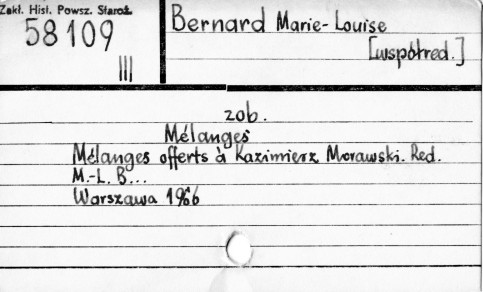 Zakł. Hist. Powsz. Staroż.
58109
III
Bernard Marie-Louise
[współred.]
zob.
Mélanges
Mélanges offerts à Kazimierz Morawski. Red.
M.-L. B...
Warszawa 1966